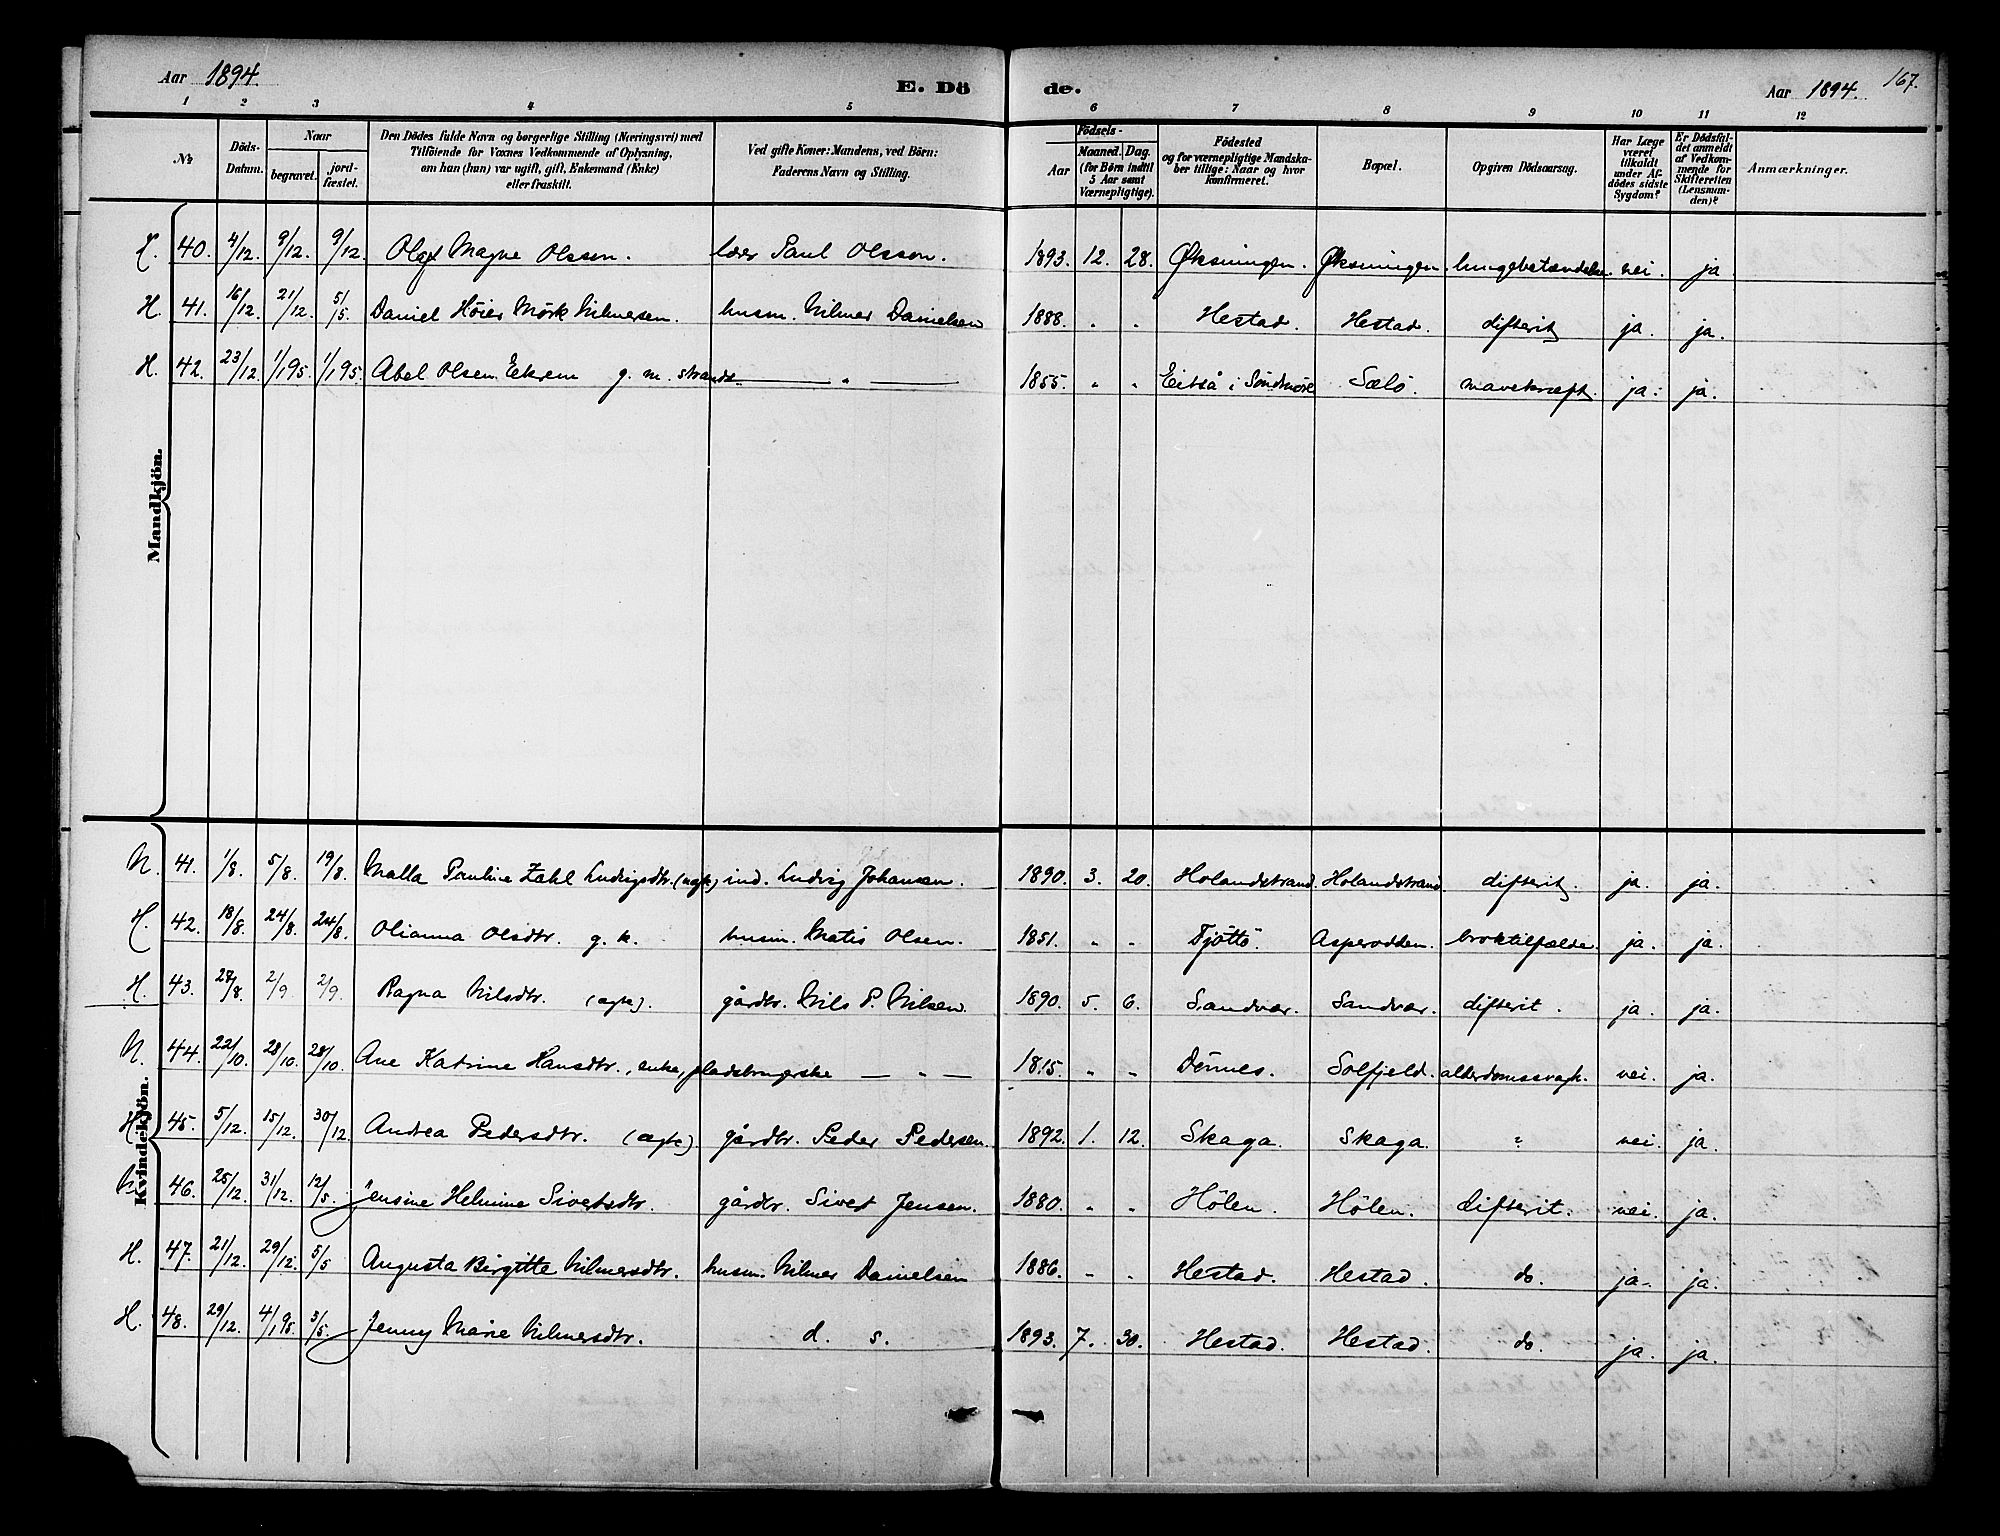 Aar 1894. E. Dö
de. Aar 1894. 167.
1 2 3 4 5 6 7 8 9 10 11 12
№
Döds-Datum.
Naar
begravet.
jord-fæstet.
Den Dödes fulde Navn og borgerlige Stilling (Næringsvei) med
Tilföiende for Voxnes Vedkommende af Oplysning,
om han (hun) var ugift, gift, Enkemand (Enke)
eller fraskilt.
Ved gifte Koner: Mandens, ved Börn:
Faderens Navn og Stilling.
Födsels-
Aar
Maaned. Dag.
(for Börn indtil
5 Aar samt
Værnepligtige).
Födested
og for værnepligtige Mandska-
ber tillige: Naar og hvor
konfirmeret.
Bopæl.
Opgiven Dödsaarsag.
Har Læge
været
tilkaldt
under Af-
dödes sidste
Sygdom?
Er Dödsfal-
det anmeldt
af Vedkom-
mende for
Skifteretten
(Lensman-
den)?
Anmærkninger.
Mandkjön.
H. 40. 4/12. 9/12. 9/12. Olaf Magne Olsson. lærer Paul Olsson. 1893. 12. 28. Øksningen. Øksningen. lungebetændelse. nei. ja
H. 41. 16/12. 21/12. 5/5. Daniel Höier Mörk Nilmersen. husm. Nilmer Danielsen 1888. " " Hestad. Hestad. difterit ja. ja.
H. 42. 23/12. 1/1 95. 1/1 95. Abel Olsen Eekrem g. m. strands. — " — 1855. " " Eitså i Söndmöre Sælö. mavekræft. ja. ja.
Kvindekjön.
N. 41. 1/8. 5/8. 19/8. Malla Pauline Zahl Ludvigsdtr. (ugte) ind. Ludvig Johansen. 1890. 3. 20. Holandstrand. Holandstrand difterit. ja. ja.
H. 42. 18/8. 24/8. 24/8. Olianna Olsdtr. g. k. husm. Matis Olsen. 1851. " " Tjöttö. Asperodden. broktilfælde. ja. ja.
H. 43. 28/8. 2/9. 2/9. Ragna Nilsdtr. (ægte). gårdbr. Nils P. Nilsen. 1890. 5. 6. Sandvær. Sandvær. difterit. ja. ja.
N. 44. 22/10. 28/10. 28/10. Ane Katrine Hansdtr., enke, pladsbrugerske — " — 1815. " " Dönnes. Solfjeld. alderdomssvagh. nei. ja.
H. 45. 5/12. 15/12. 30/12. Andrea Pedersdtr. (ægte) gårdbr. Peder Pedersen. 1892. 1. 12. Skaga. Skaga. " nei. ja.
N. 46. 25/12. 31/12. 12/5. Jensine Helmine Sivertsdtr. gårdbr. Sivert Jensen. 1880. " " Hölen. Hölen. difterit. nei. ja.
H. 47. 21/12. 29/12. 5/5 Augusta Birgitte Nilmersdtr. husm. Nilmer Danielsen 1886. " " Hestad. Hestad. do. ja. ja.
H. 48. 29/12. 4/1 95. 5/5. Jenny Marie Nilmersdtr. d. s. 1893. 7. 30. Hestad. Hestad. do. ja. ja.